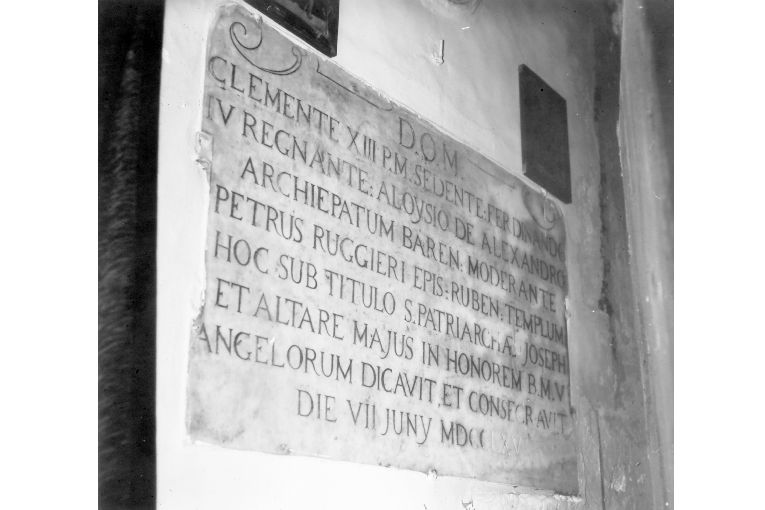 D.O.M
CLEMENTE XIII P.M. SEDENTE: FERDINANDO
IV REGNANTE: ALOYSIO DE ALEXANDRO
ARCHIEPATUM BAREN: MODERANTE
PETRUS RUGGIERI EPIS: RUBEN: TEMPLUM
HOC SUB TITULO S. PATRIARCHÆ JOSEPH
ET ALTARE MAJUS IN HONOREM B.M.V
ANGELORUM DICAVIT, ET CONSECRAVIT
DIE VII JUNY